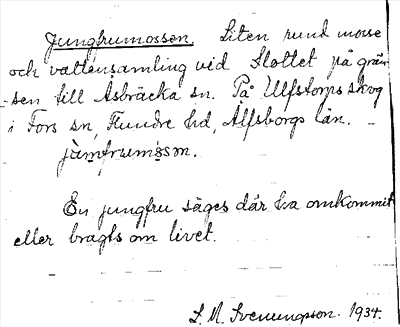 Jungfrumossen. Liten rund mosse
och vattensamling vid Slottet på grän-
sen till Åsbräcka sn. På Ulfstorps skog
i Fors sn, Flundre hd, Älfsborgs län.
jàmfrumósən.
En jungfru säges där ha omkommit
eller bragts om livet.
L. M. Svenungsson. 1934.